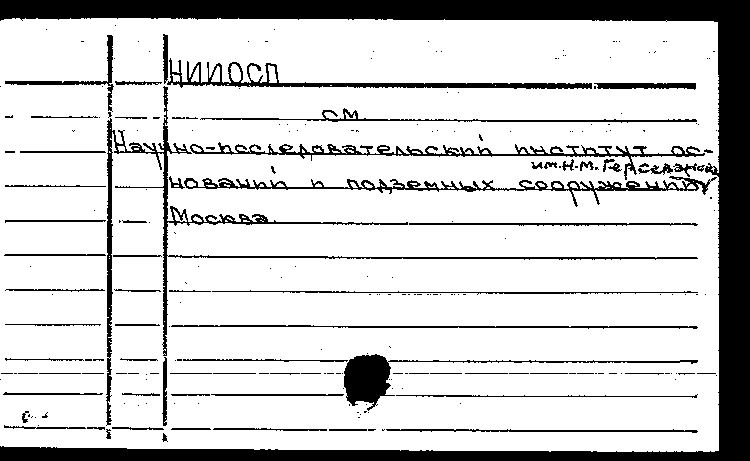 НИИОСП
см.
Научно-исследовательский институт ос-
им. Н.М. Герсеванова
нований и подземных сооружений
Москва.